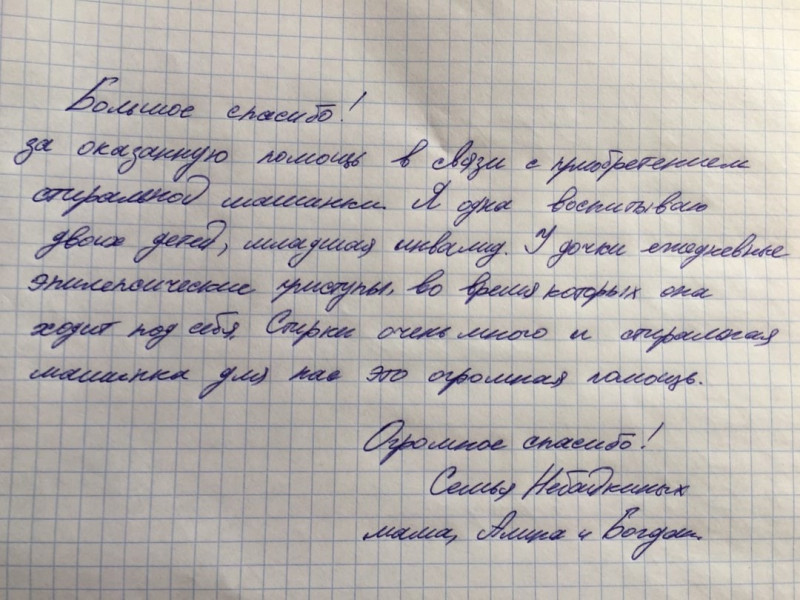 Большое спасибо!
за оказанную помощь в связи с приобретением
стиральной машинки. Я одна воспитываю
двоих детей, младшая инвалид. У дочки ежедневные
эпилепсические приступы, во время которых она
ходит под себя. Стирки очень много и стиральная
машинка для нас это огромная помощь.
Огромное спасибо!
Семья
мама, Алира и Богдан.